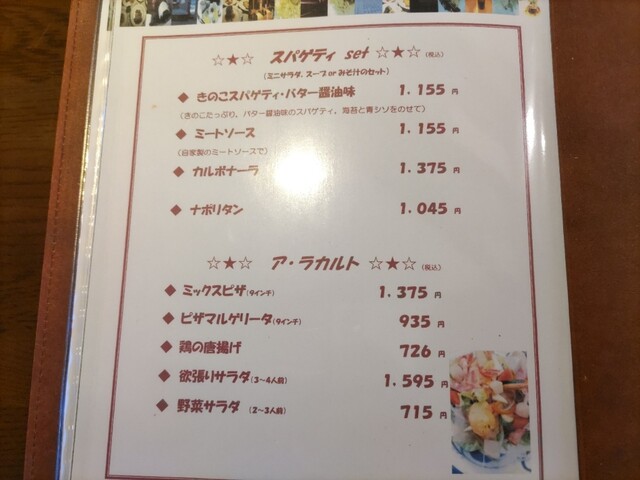 ☆★☆ スパゲティ set ☆★☆(税込)
(ミニサラダ、スープ or みそ汁のセット)
◆ きのこスパゲティ・バター醤油味 1.155 円
(きのこたっぷり、バター醤油味のスパゲティ、海苔と青シソをのせて)
◆ ミートソース 1.155 円
(自家製のミートソースで)
◆ カルボナーラ 1.375 円
◆ ナポリタン 1.045 円
☆★☆ ア・ラカルト ☆★☆(税込)
◆ ミックスピザ(9インチ) 1.375 円
◆ ピザマルゲリータ(9インチ) 935 円
◆ 鶏の唐揚げ 726 円
◆ 欲張りサラダ(3~4人前) 1.595 円
◆ 野菜サラダ (2~3人前) 715 円